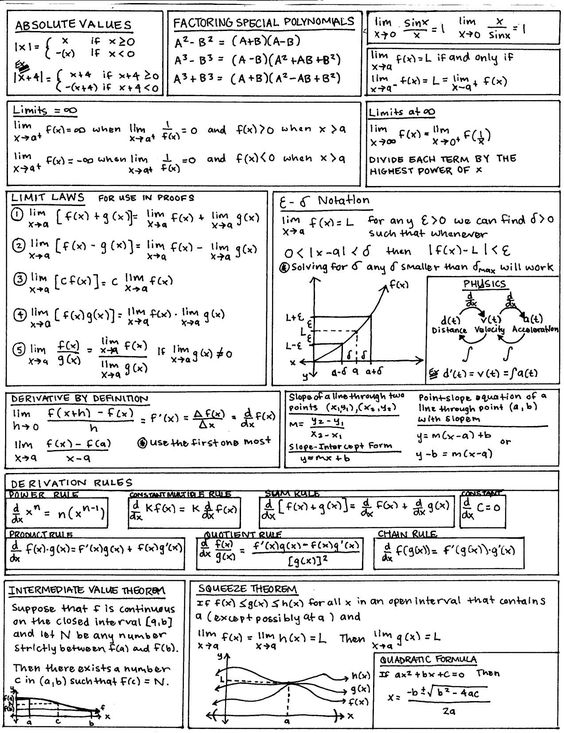 ABSOLUTE VALUES
|x| = { x if x ≥ 0
-(x) if x < 0
Ex
|x+4| = { x+4 if x+4 ≥ 0
-(x+4) if x+4 < 0
FACTORING SPECIAL POLYNOMIALS
A² - B² = (A+B)(A-B)
A³ - B³ = (A-B)(A²+AB+B²)
A³ + B³ = (A+B)(A²-AB+B²)
lim x→0 sinx/x = 1 lim x→0 x/sinx = 1
lim x→a f(x) = L if and only if
lim x→a⁻ f(x) = L = lim x→a⁺ f(x)
Limits = ∞
lim x→a⁺ f(x) = ∞ when lim x→a⁺ 1/f(x) = 0 and f(x) > 0 when x > a
lim x→a⁺ f(x) = -∞ when lim x→a⁺ 1/f(x) = 0 and f(x) < 0 when x > a
Limits at ∞
lim x→∞ f(x) = lim x→0⁺ f(1/x)
DIVIDE EACH TERM BY THE
HIGHEST POWER OF X
LIMIT LAWS FOR USE IN PROOFS
① lim x→a [f(x) + g(x)] = lim x→a f(x) + lim x→a g(x)
② lim x→a [f(x) - g(x)] = lim x→a f(x) - lim x→a g(x)
③ lim x→a [cf(x)] = c lim x→a f(x)
④ lim x→a [f(x)g(x)] = lim x→a f(x) · lim x→a g(x)
⑤ lim x→a f(x)/g(x) = lim x→a f(x) / lim x→a g(x) if lim x→a g(x) ≠ 0
ε - δ Notation
lim x→a f(x) = L for any ε > 0 we can find δ > 0
such that whenever
0 < |x-a| < δ then |f(x)-L| < ε
Solving for δ any δ smaller than δmax will work
f(x)
L+ε
ε
L
ε
L-ε
y
x
δ δ
a-δ a a+δ
PHYSICS
d/dx d/dx
d(t) v(t) a(t)
Distance Velocity Acceleration
∫ ∫
Ex d'(t) = v(t) = ∫a(t)
DERIVATIVE BY DEFINITION
lim h→0 f(x+h) - f(x) / h = f'(x) = Δf(x)/Δx = d/dx f(x)
lim x→a f(x) - f(a) / x-a use the first one most
Slope of a line through two
points (x₁,y₁),(x₂,y₂)
m = y₂-y₁ / x₂-x₁
Slope-Intercept Form
y = mx+b
Point-slope equation of a
line through point (a,b)
with slope m
y = m(x-a)+b
or
y-b = m(x-a)
DERIVATION RULES
POWER RULE
d/dx xⁿ = n(xⁿ⁻¹)
CONSTANT MULTIPLE RULE
d/dx Kf(x) = K d/dx f(x)
SUM RULE
d/dx [f(x) + g(x)] = d/dx f(x) + d/dx g(x)
CONSTANT
d/dx C = 0
PRODUCT RULE
d/dx f(x)·g(x) = f'(x)g(x) + f(x)g'(x)
QUOTIENT RULE
d/dx f(x)/g(x) = f'(x)g(x) - f(x)g'(x) / [g(x)]²
CHAIN RULE
d/dx f(g(x)) = f'(g(x))·g'(x)
INTERMEDIATE VALUE THEOREM
Suppose that f is continuous
on the closed interval [a,b]
and let N be any number
strictly between f(a) and f(b).
Then there exists a number
c in (a,b) such that f(c) = N.
y
f
a c b x
SQUEEZE THEOREM
If f(x) ≤ g(x) ≤ h(x) for all x in an open interval that contains
a (except possibly at a) and
lim x→a f(x) = lim x→a h(x) = L Then lim x→a g(x) = L
y
L
h(x)
g(x)
f(x)
a
x
QUADRATIC FORMULA
If ax²+bx+c=0 Then
x = -b ± √b²-4ac / 2a